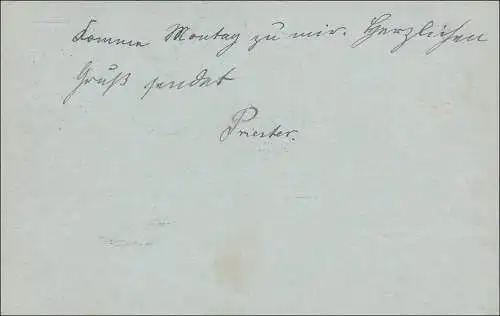 Komme Montag zu mir. Herzlichen
Gruß sendet
Priester.